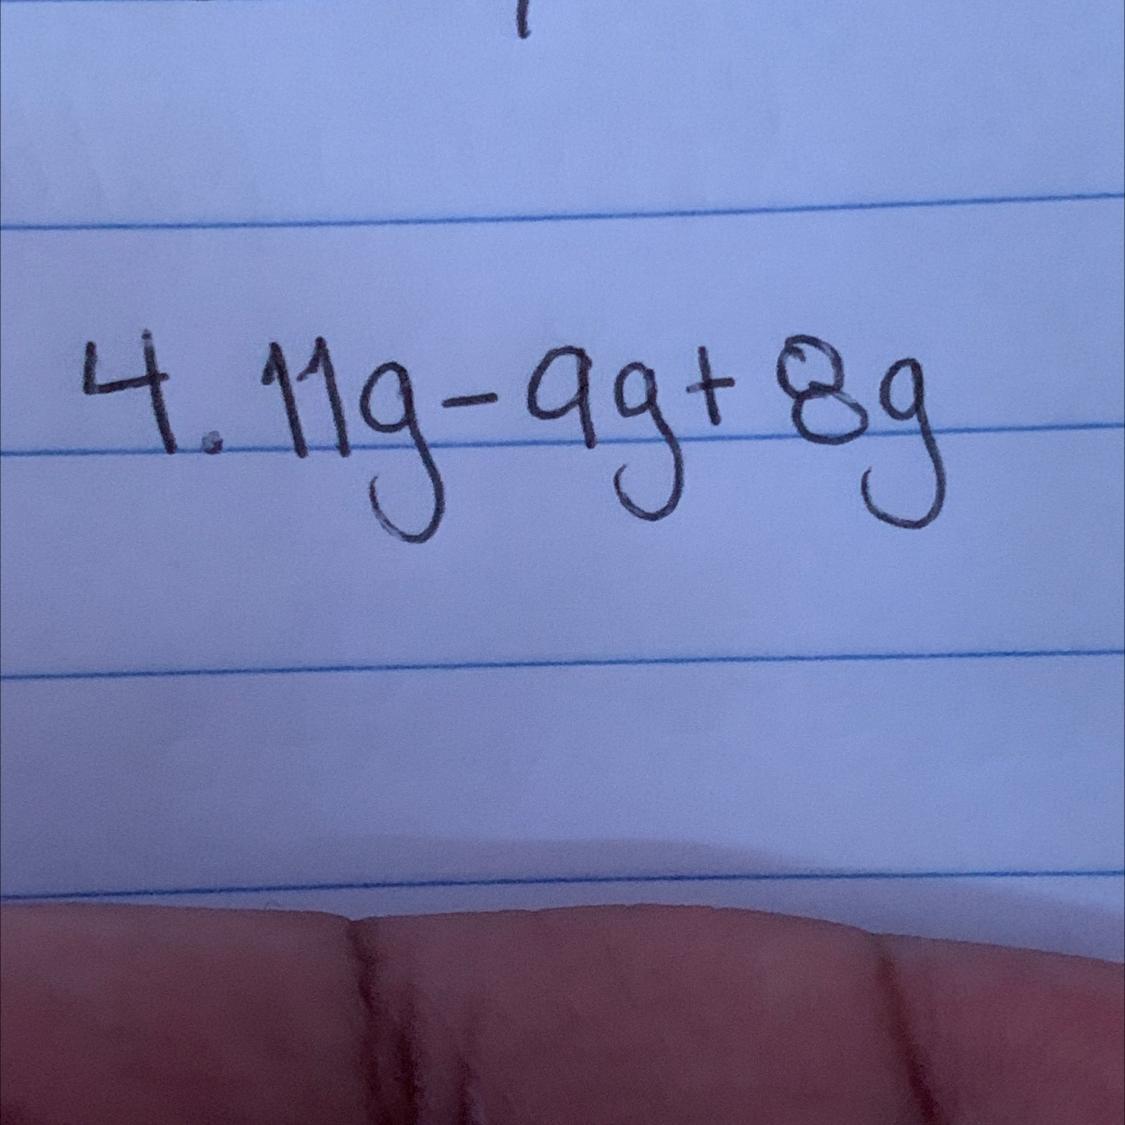 4. 11g - 9g + 8g